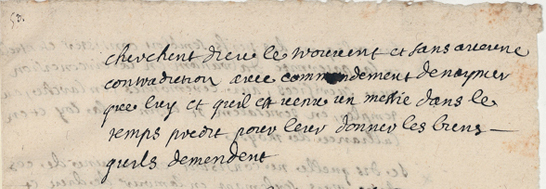 53.
cherchent dieu le trouvent et sans aucune
contradiction avec commendement de n'aymer
que luy et qu'il est venu un messie dans le
temps predit pour leur donner les biens
quils demendent